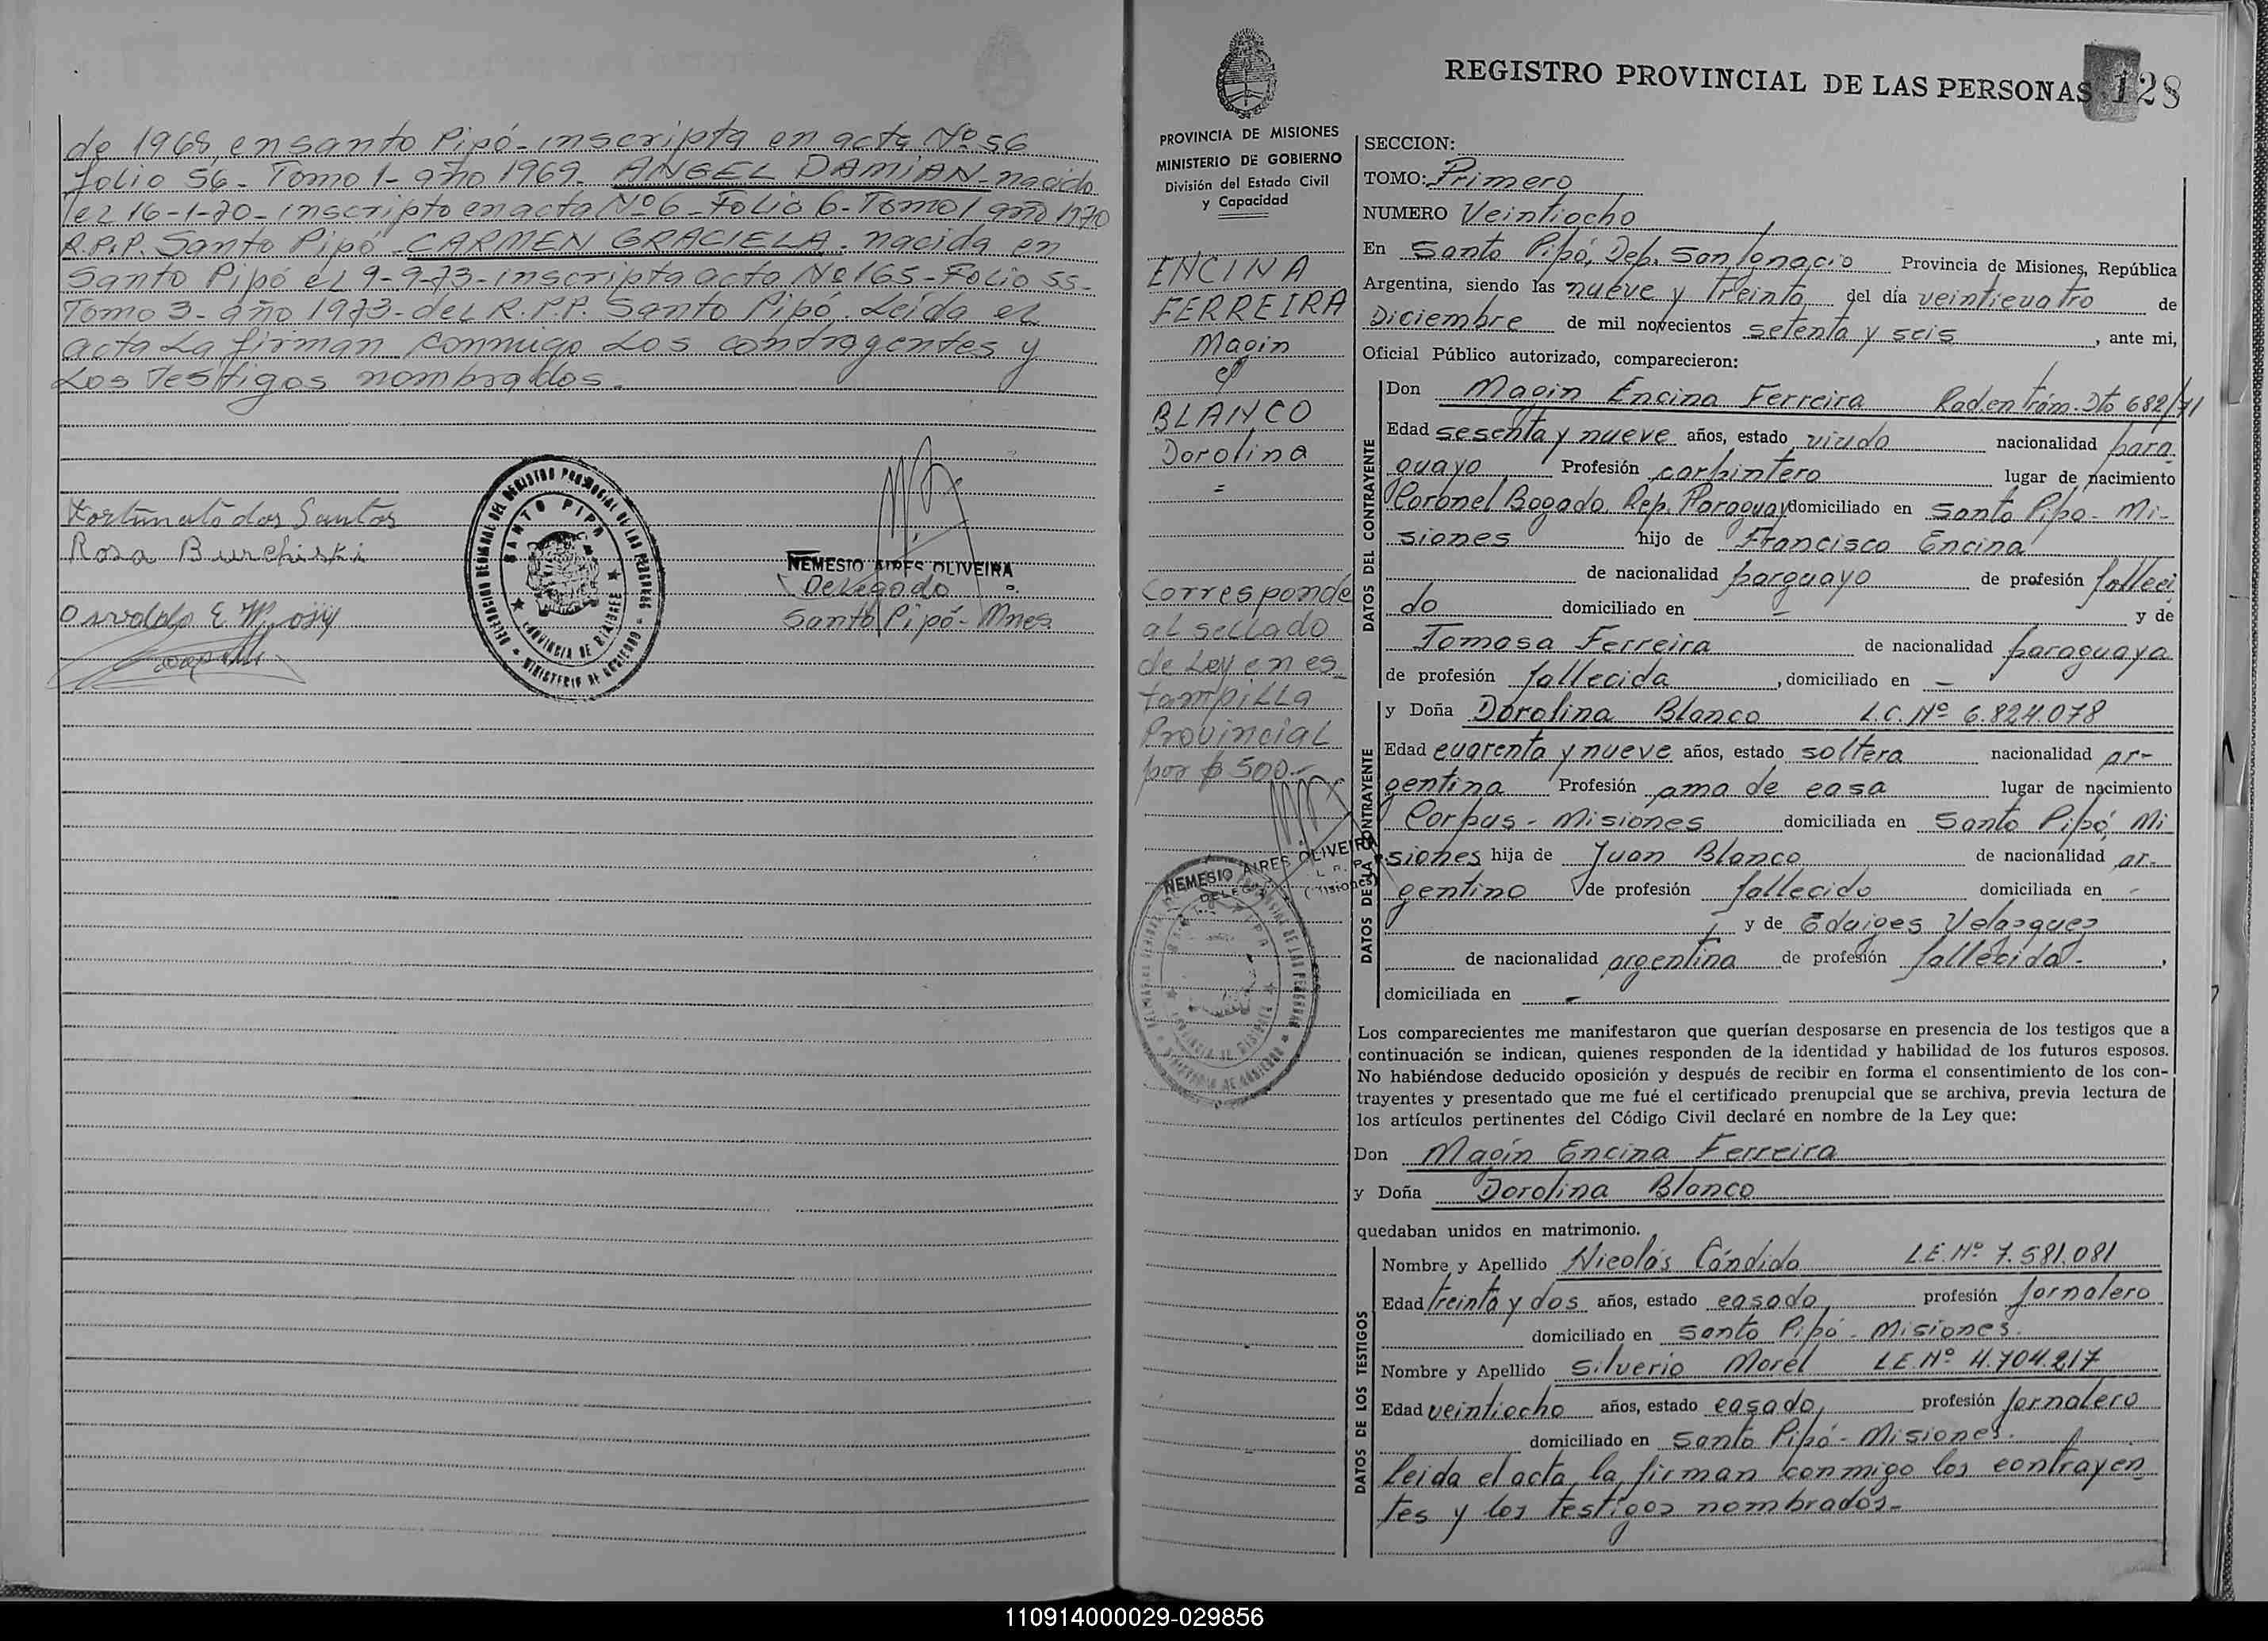 de 1968, en santo Pipó - inscripta en acta Nº 56
folio 56 - Tomo 1 - año 1969 - ANGEL DAMIAN - nacido
el 16-1-70 - inscripto en acta Nº 6 - Folio 6 - Tomo 1 año 1970
R.P.P. Santo Pipó - CARMEN GRACIELA - nacida en
Santo Pipó el 9-9-73 - inscripta acta Nº 165 - Folio 55 -
Tomo 3 - año 1973 - del R.P.P. Santo Pipó. Leída el
acta la firman conmigo los contrayentes y
los testigos nombrados.
Fortunato dos Santos
Rosa
Osvaldo E
DELEGACION REGIONAL DEL REGISTRO PROVINCIAL DE LAS PERSONAS
SANTO PIPO
PROVINCIA DE MISIONES
MINISTERIO DE GOBIERNO
NEMESIO AIRES OLIVEIRA
Delegado
Santo Pipó - Mnes
REGISTRO PROVINCIAL DE LAS PERSONAS 128
PROVINCIA DE MISIONES
MINISTERIO DE GOBIERNO
División del Estado Civil
y Capacidad
ENCINA
FERREIRA
Magin
c/
BLANCO
Dorolina
=
Corresponde
al sellado
de Ley en es
tampilla
Provincial
por $ 500.-
NEMESIO AIRES OLIVEIRA
DELEG
(Misiones)
SECCION:
TOMO: Primero
NUMERO Veintiocho
En Santo Pipó, Dep. San Ignacio Provincia de Misiones, República
Argentina, siendo las nueve y treinta del día veinticuatro de
Diciembre de mil novecientos setenta y seis , ante mi,
Oficial Público autorizado, comparecieron:
DATOS DEL CONTRAYENTE
Don Magin Encina Ferreira Rad en trám. Dto 682/71
Edad sesenta y nueve años, estado viudo nacionalidad para-
guayo Profesión carpintero lugar de nacimiento
Coronel Bogado Rep. Paraguay domiciliado en Santo Pipó - Mi-
siones hijo de Francisco Encina
de nacionalidad parguayo de profesión falleci
do domiciliado en - y de
Tomasa Ferreira de nacionalidad paraguaya
de profesión fallecida , domiciliado en -
DATOS DE LA CONTRAYENTE
y Doña Dorolina Blanco L.C. Nº 6.824.078
Edad cuarenta y nueve años, estado soltera nacionalidad ar-
gentina Profesión ama de casa lugar de nacimiento
Corpus - Misiones domiciliada en Santo Pipó, Mi
siones hija de Juan Blanco de nacionalidad ar-
gentino de profesión fallecido domiciliada en -
y de Eduiges Velazquez
de nacionalidad argentina de profesión fallecida - ,
domiciliada en -
Los comparecientes me manifestaron que querían desposarse en presencia de los testigos que a
continuación se indican, quienes responden de la identidad y habilidad de los futuros esposos.
No habiéndose deducido oposición y después de recibir en forma el consentimiento de los con-
trayentes y presentado que me fué el certificado prenupcial que se archiva, previa lectura de
los artículos pertinentes del Código Civil declaré en nombre de la Ley que:
Don Magín Encina Ferreira
y Doña Dorolina Blanco
quedaban unidos en matrimonio.
DATOS DE LOS TESTIGOS
Nombre y Apellido Nicolás Cándido L.E. Nº 7.581.081
Edad treinta y dos años, estado casado, profesión jornalero
domiciliado en Santo Pipó - Misiones.
Nombre y Apellido Silverio Morel L.E. Nº 4.704.217
Edad veintiocho años, estado casado, profesión jornalero
domiciliado en Santo Pipó - Misiones.
Leida el acta, la firman conmigo los contrayen
tes y los testigos nombrados.-
110914000029-029856